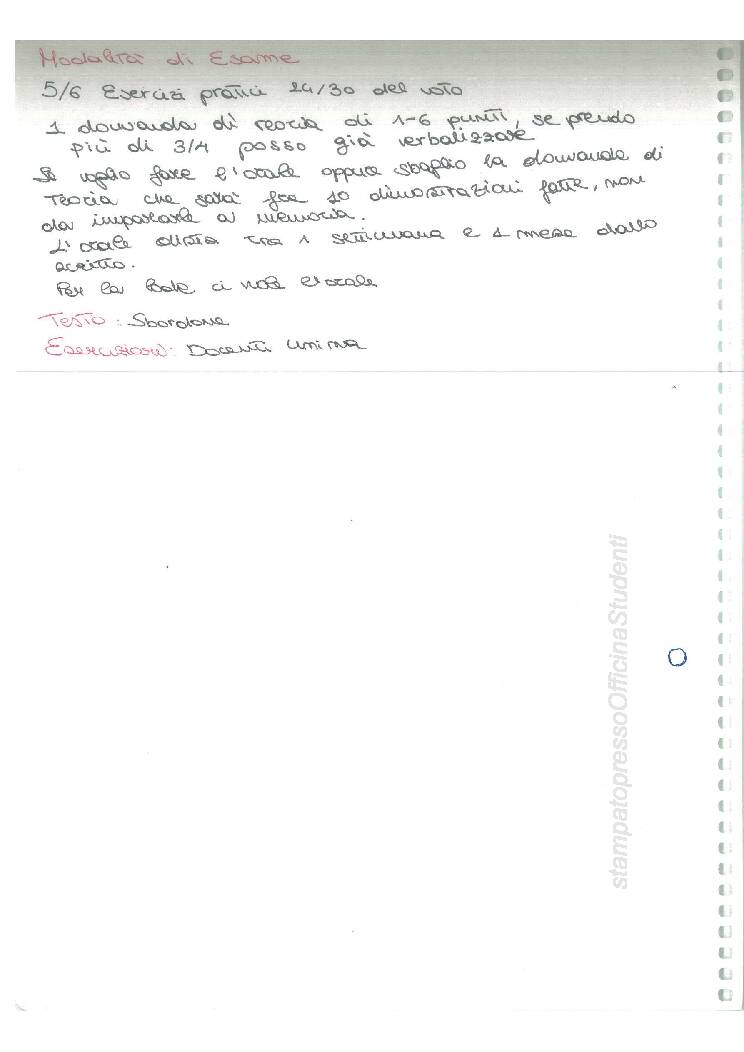 Modalità di Esame
5/6 Esercizi pratici 24/30 del voto
1 domanda di teoria di 1-6 punti, se prendo
più di 3/4 posso già verbalizzare
Se voglio fare l'orale oppure sbaglio la domanda di
Teoria che sarà fra 10 dimostrazioni fatte, non
da impararle a memoria.
L'orale dista tra 1 settimana e 1 mese dallo
scritto.
Per la lode ci vuole l'orale
Testo: Sbordone
Esercizioni: Docenti unirma
stampatopressoOfficinaStudenti